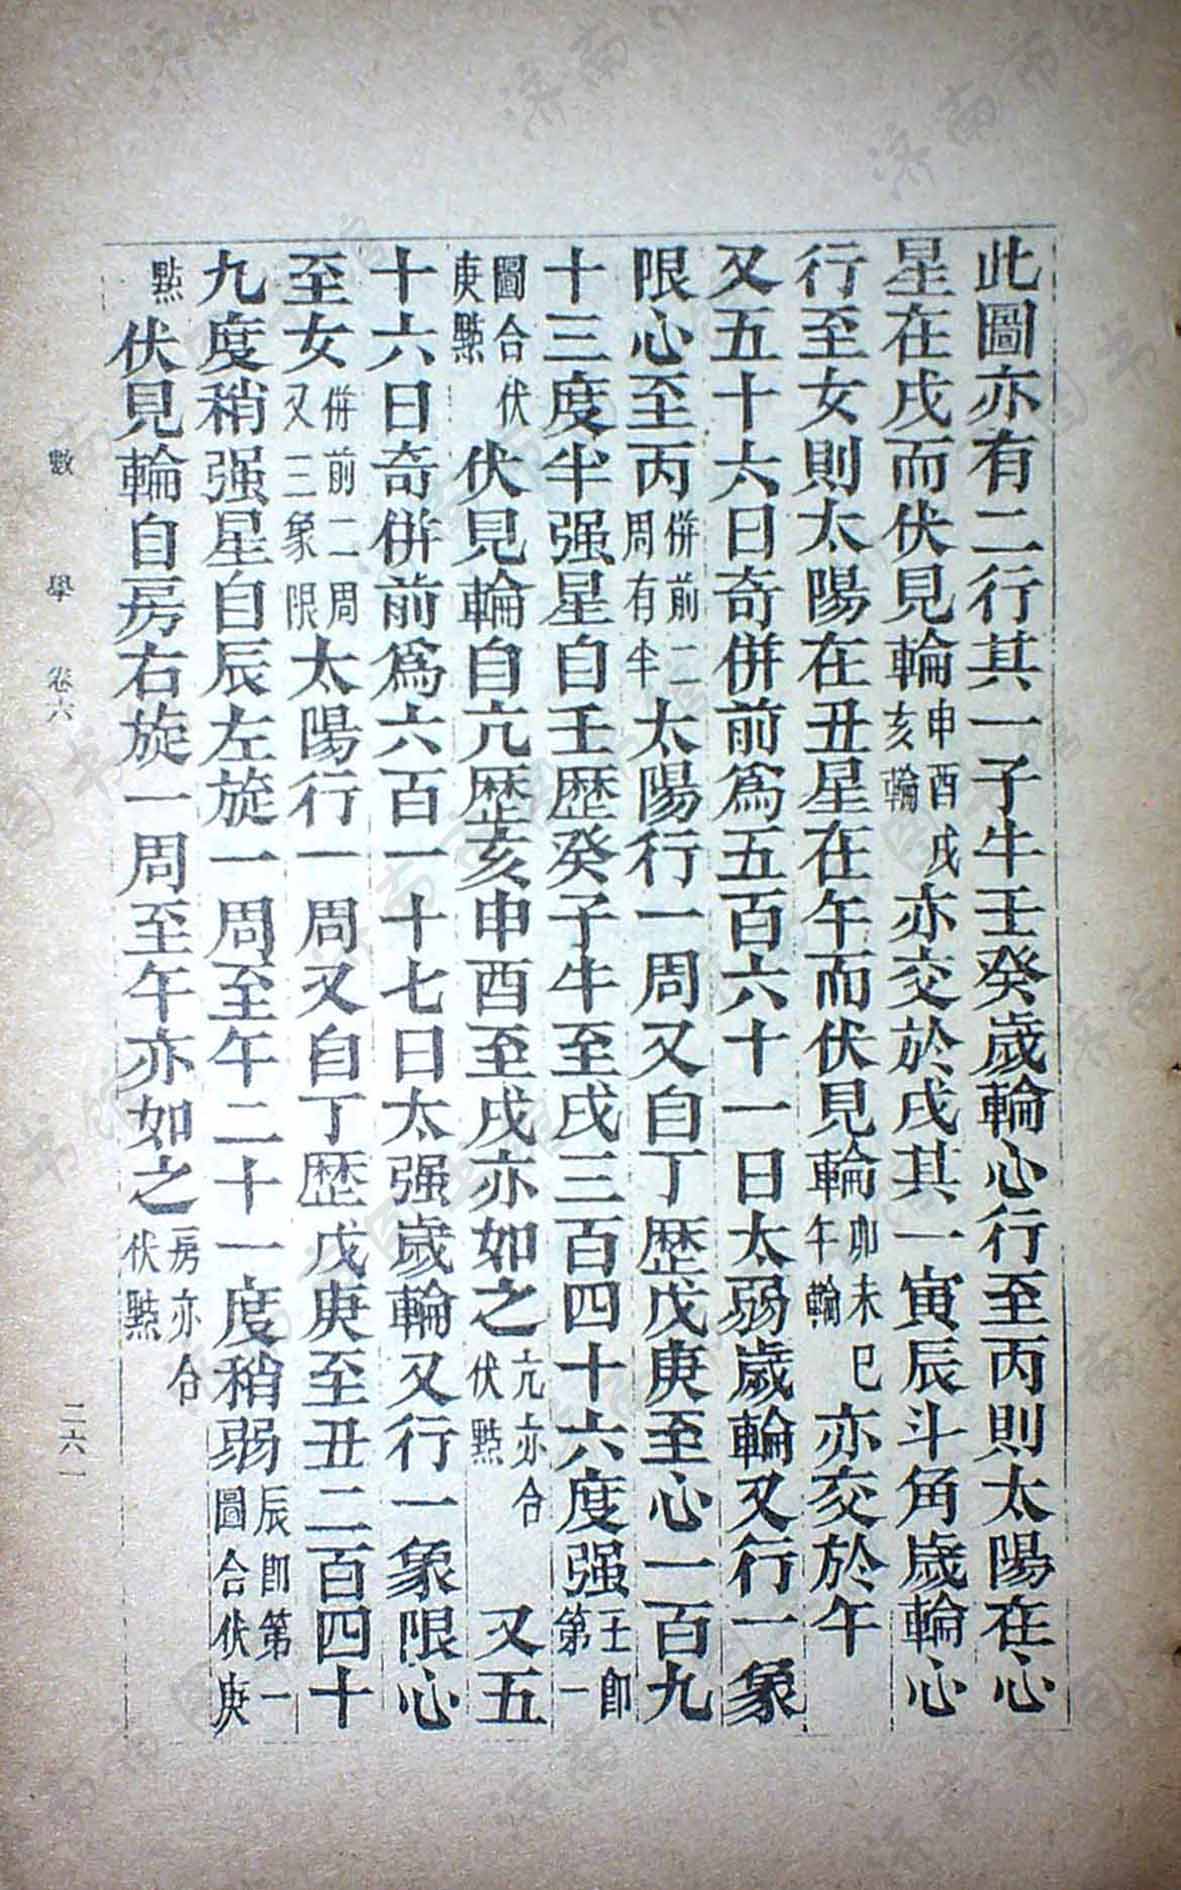 此圖亦有二行其一子牛壬癸歲輪心行至丙則太陽在心
星在戌而伏見輪申酉戌亥輪亦交於戌其一寅辰斗角歲輪心
行至女則太陽在丑星在午而伏見輪卯未巳午輪亦交於午
又五十六日奇併前爲五百六十一日太弱歲輪又行一象
限心至丙併前二周有半太陽行一周又自丁歷戊庚至心一百九
十三度半强星自壬歷癸子牛至戌三百四十六度强壬即第一
圖合伏庚點伏見輪自亢歷亥申酉至戌亦如之亢亦合伏點 又五
十六日奇併前爲六百一十七日太强歲輪又行一象限心
至女併前二周又三象限太陽行一周又自丁歷戊庚至丑二百四十
九度稍强星自辰左旋一周至午二十一度稍弱辰即第一圖合伏庚
點伏見輪自房右旋一周至午亦如之房亦合伏點
數學 卷六 二六一